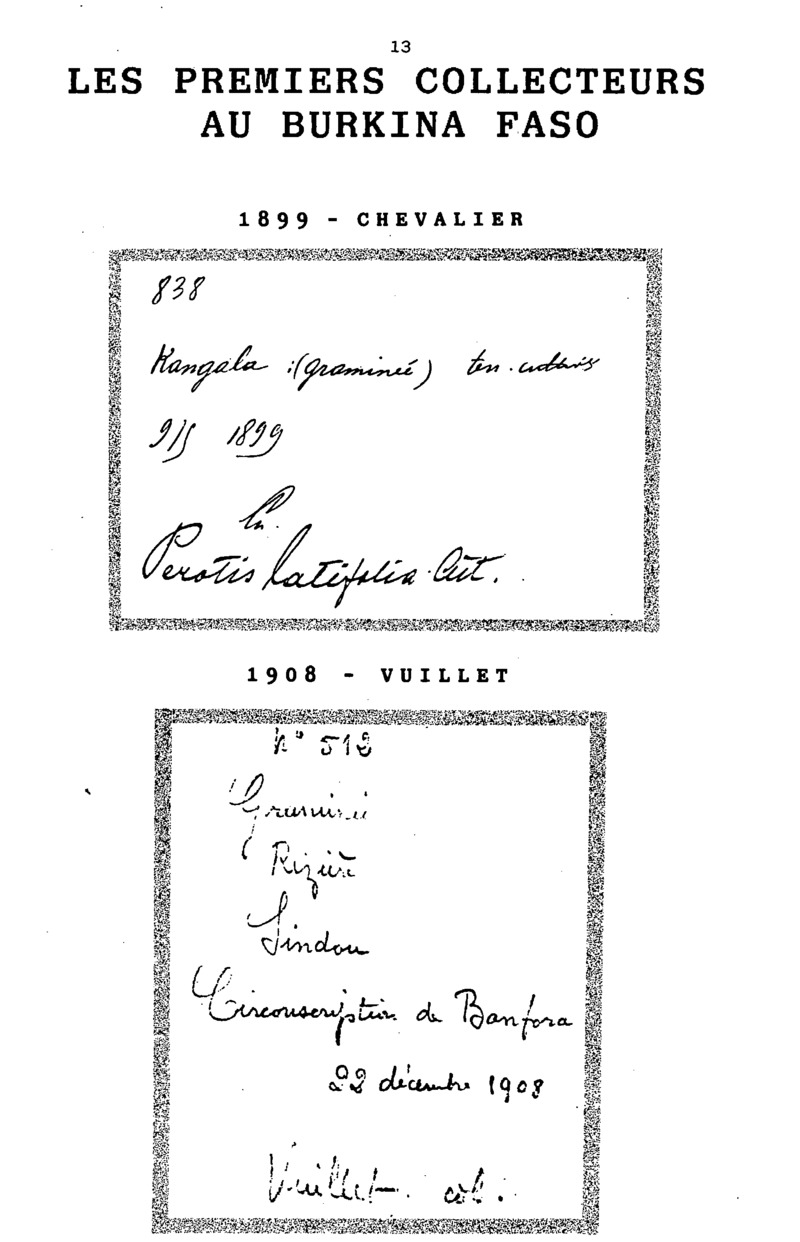 13
LES PREMIERS COLLECTEURS
AU BURKINA FASO
1899 - CHEVALIER
838
Kangala :(graminée)
9/5 1899
Perotis latifolia
1908 - VUILLET
N° 512
Graminé
Rizière
Sindou
Circonscription de Banfora
22 décembre 1908
Vuillet. col.